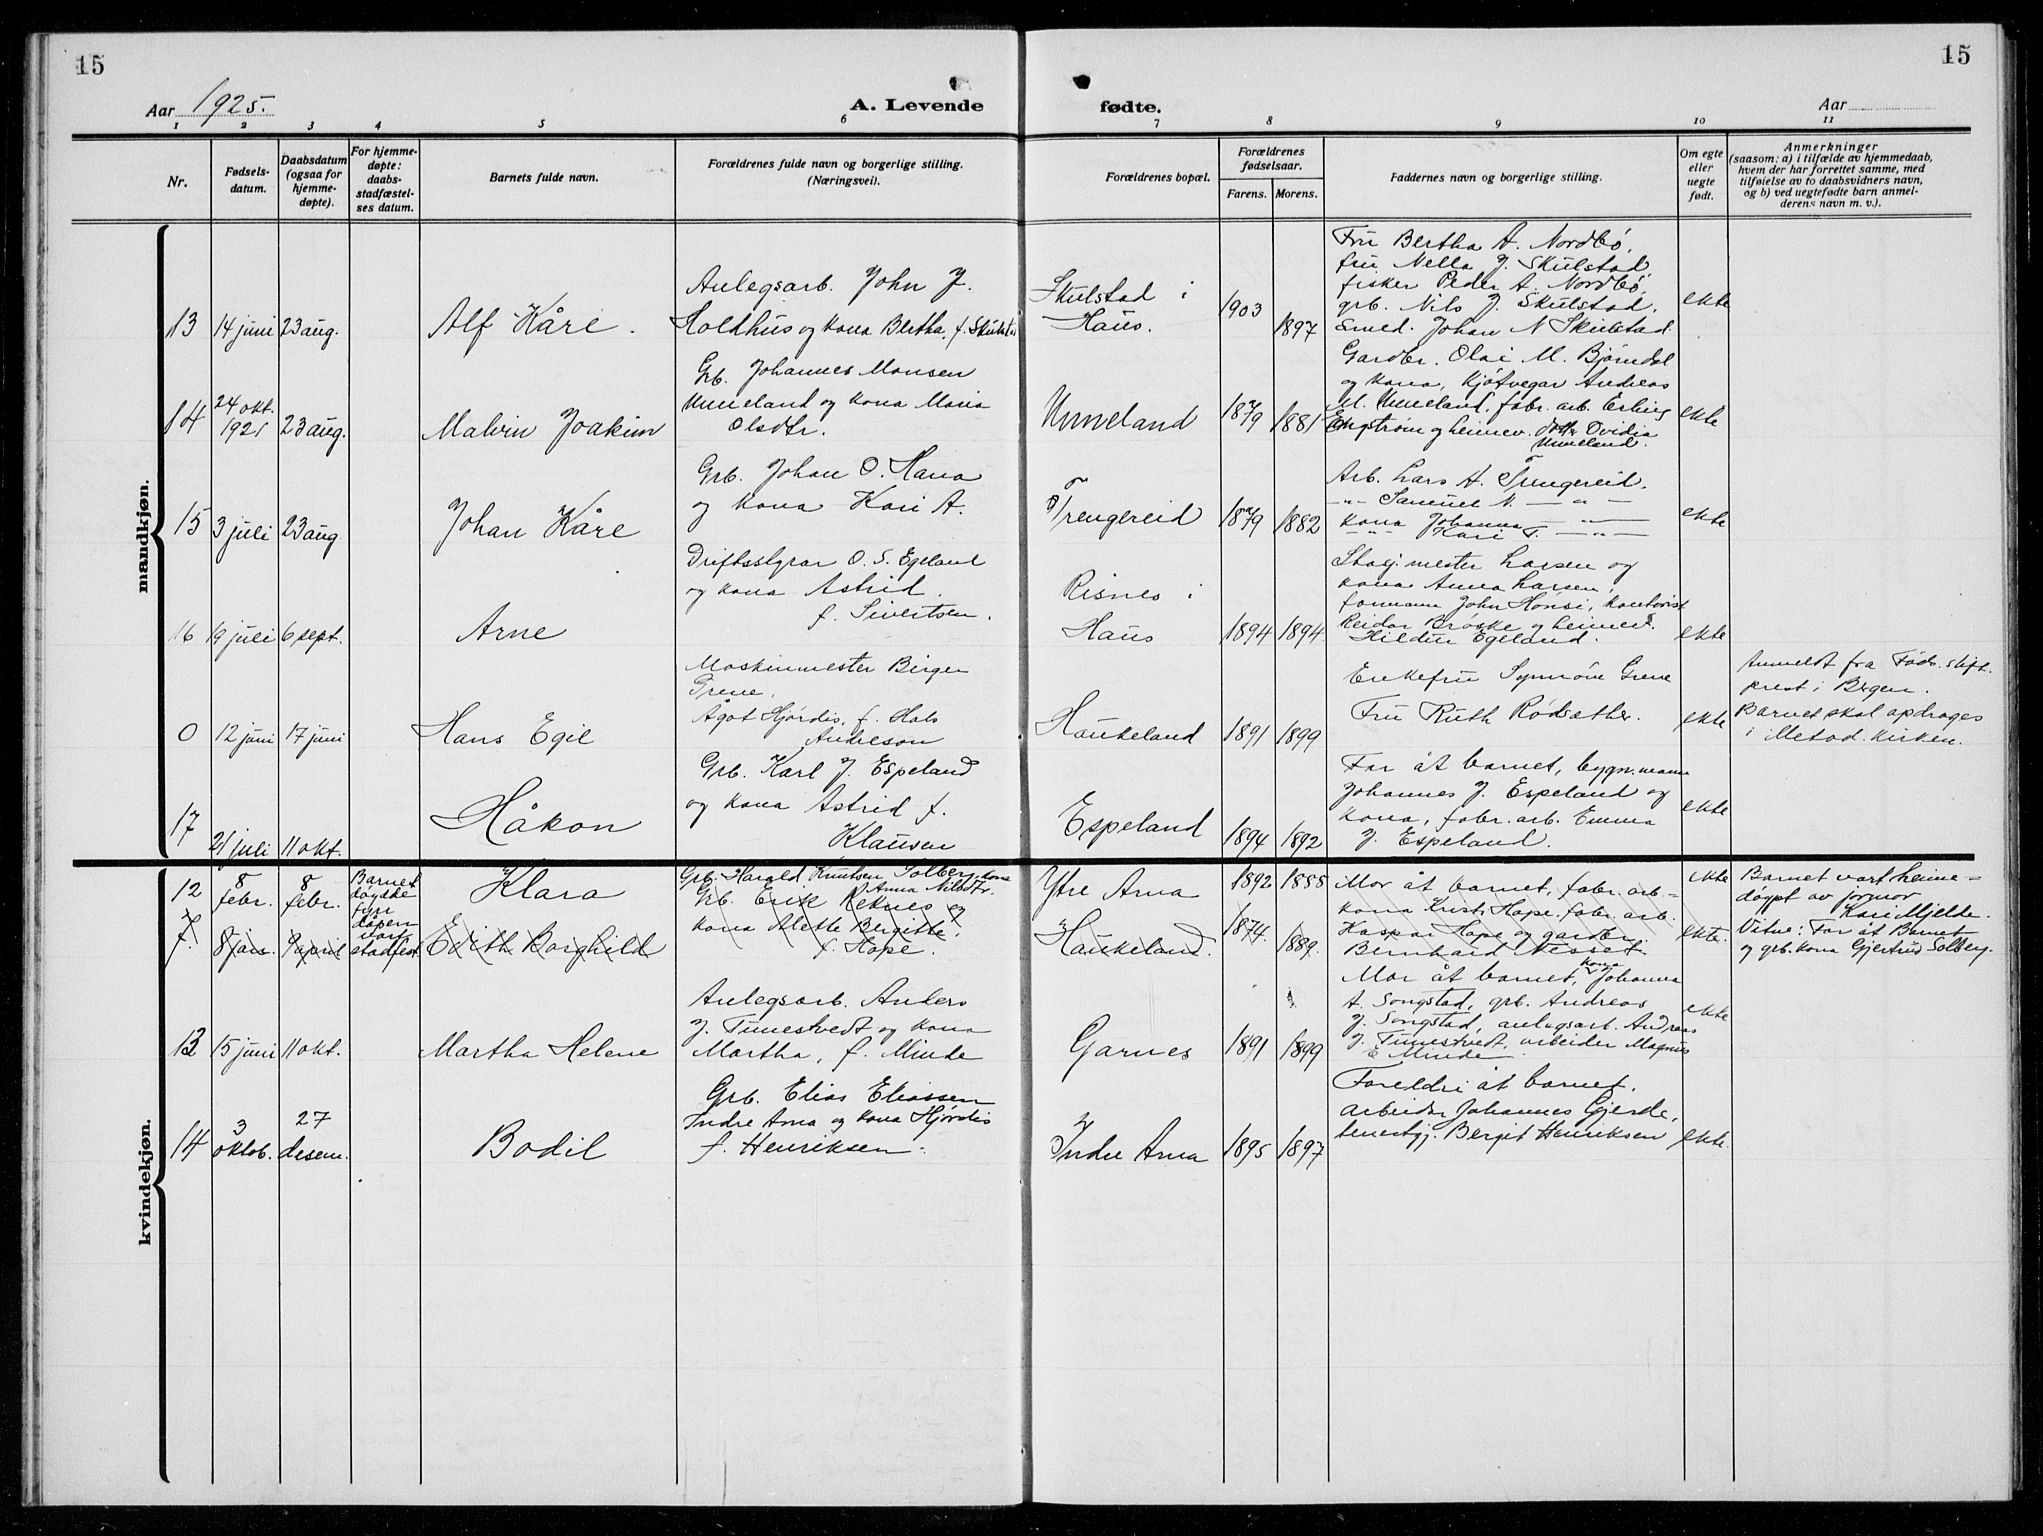 15
15
Aar 1925.
A. Levende
fødte.
Aar
1 2 3 4 5 6 7 8 9 10 11
Nr.
Fødsels-
datum.
Daabsdatum
(ogsaa for
hjemme-
døpte).
For hjemme-
døpte:
daabs-
stadfæstel-
ses datum.
Barnets fulde navn.
Forældrenes fulde navn og borgerlige stilling.
(Næringsvei).
Forældrenes bopæl.
Forældrenes
fødselsaar.
Farens. Morens.
Faddernes navn og borgerlige stilling.
Om egte
eller
uegte
født.
Anmerkninger
(saasom: a) i tilfælde av hjemmedaab,
hvem der har forrettet samme, med
tilføielse av to daabsvidners navn,
og b) ved uegtefødte barn anmel-
derens navn m. v.).
mandkjøn.
13
14 juni
23 aug.
Alf Kåre.
Anlegsarb. John J.
Holdhus og kona Bertha, f. Skulstad
Skulstad i
Haus.
1903
1897
Fru Bertha A. Nordbö,
fru Nella J. Skulstad,
fisker Peder A. Nordbö,
grb. Nils J. Skulstad,
Smed. Johan N. Skulstad.
ekte
14
24 okt.
1921
23 aug.
Malvin Joakim
Grb. Johannes Monsen
Unneland og kona Maria
Olsdtr.
Unneland
1879
1881
Gardbr. Olai M. Bjørndal
og kona, Kjøtvegar Andreas
M. Unneland, fabr. arb. Erling
Engstrøm og heimev. dotter Ovidia
Unneland.
ekte
15
3 juli
23 aug
Johan Kåre
Grb. Johan O. Hana
og kona Kari A.
Trengereid
1879
1882
Arb. Lars A. Trengereid.
-"- Samuel N. -"-
Kona Johanna -"-
-"- Kari T. -"-
ekte
16
19 juli
6 sept.
Arne
Driftsstyrar O. S. Egeland
og kona Astrid.
f. Sivertsen.
Risnes i
Haus
1894
1894
Stasj. mester Larsen og
kona Anna Larsen,
formann John Honsi, kontorist
Reidar Brøske og heimev.
Hildur Egeland.
ekte
0
12 juni
17 juni
Hans Egil
Maskinmester Birger
Grene.
Ågot Hjørdis, f. Hals
Andreson
Haukeland
1891
1899
Enkefru Synnøve Grene
Fru Ruth Rødsæther.
ekte
Anmeldt fra Føds. stift.
prest i Bergen.
Barnet skal opdrages
i Metod. kirken.
17
21 juli
11 okt.
Håkon
Grb. Karl J. Espeland
og kona Astrid f.
Klausen
Espeland
1894
1892
Far åt barnet, bygn. mann
Johannes J. Espeland og
kona, fabr. arb. Emma
J. Espeland.
ekte
kvindekjøn.
12
8
febr.
8
febr.
Barnet
døydde
fyrr
dåpen
vart
stadfest.
Klara
Grb. Harald Knutsen Solberg, kona
Anna Nilsdtr.
Ytre Arna
1892
1888
Mor åt barnet, fabr. arb-
ekte
Barnet vart heime-
døypt av jormor
Kari Mjelde.
Vitne: Far åt Barnet
og grb. kona Gjertrud Solberg.
7.
8 jan.
9 april
Edith Borghild
Grb. Erik Reknes og
kona Alette Bergitte.
f. Hope.
Haukeland.
1874.
1889.
kona Krist. Hope, fabr. arb.
Kaspar Hope og gardbr.
Bernhard Nesset.
ekte.
13
15 juni
11 okt.
Martha Helene
Anlegsarb. Anders
J. Tunestvedt og kona
Martha, f. Minde
Garnes
1891
1899
Mor åt barnet, kona Johanna
A. Songstad, grb. Andreas
J. Songstad, anlegsarb. Andreas
J. Tunestvedt, arbeider Magnus
E Minde.
ekte
14
3
oktob.
27
desem.
Bodil
Grb. Elias Eliassen
Indre Arna og kona Hjørdis
f. Henriksen.
Indre Arna
1895
1897
Foreldri åt barnet,
arbeidar Johannes Gjerde,
tenestgj. Bergit Henriksen
ekte.